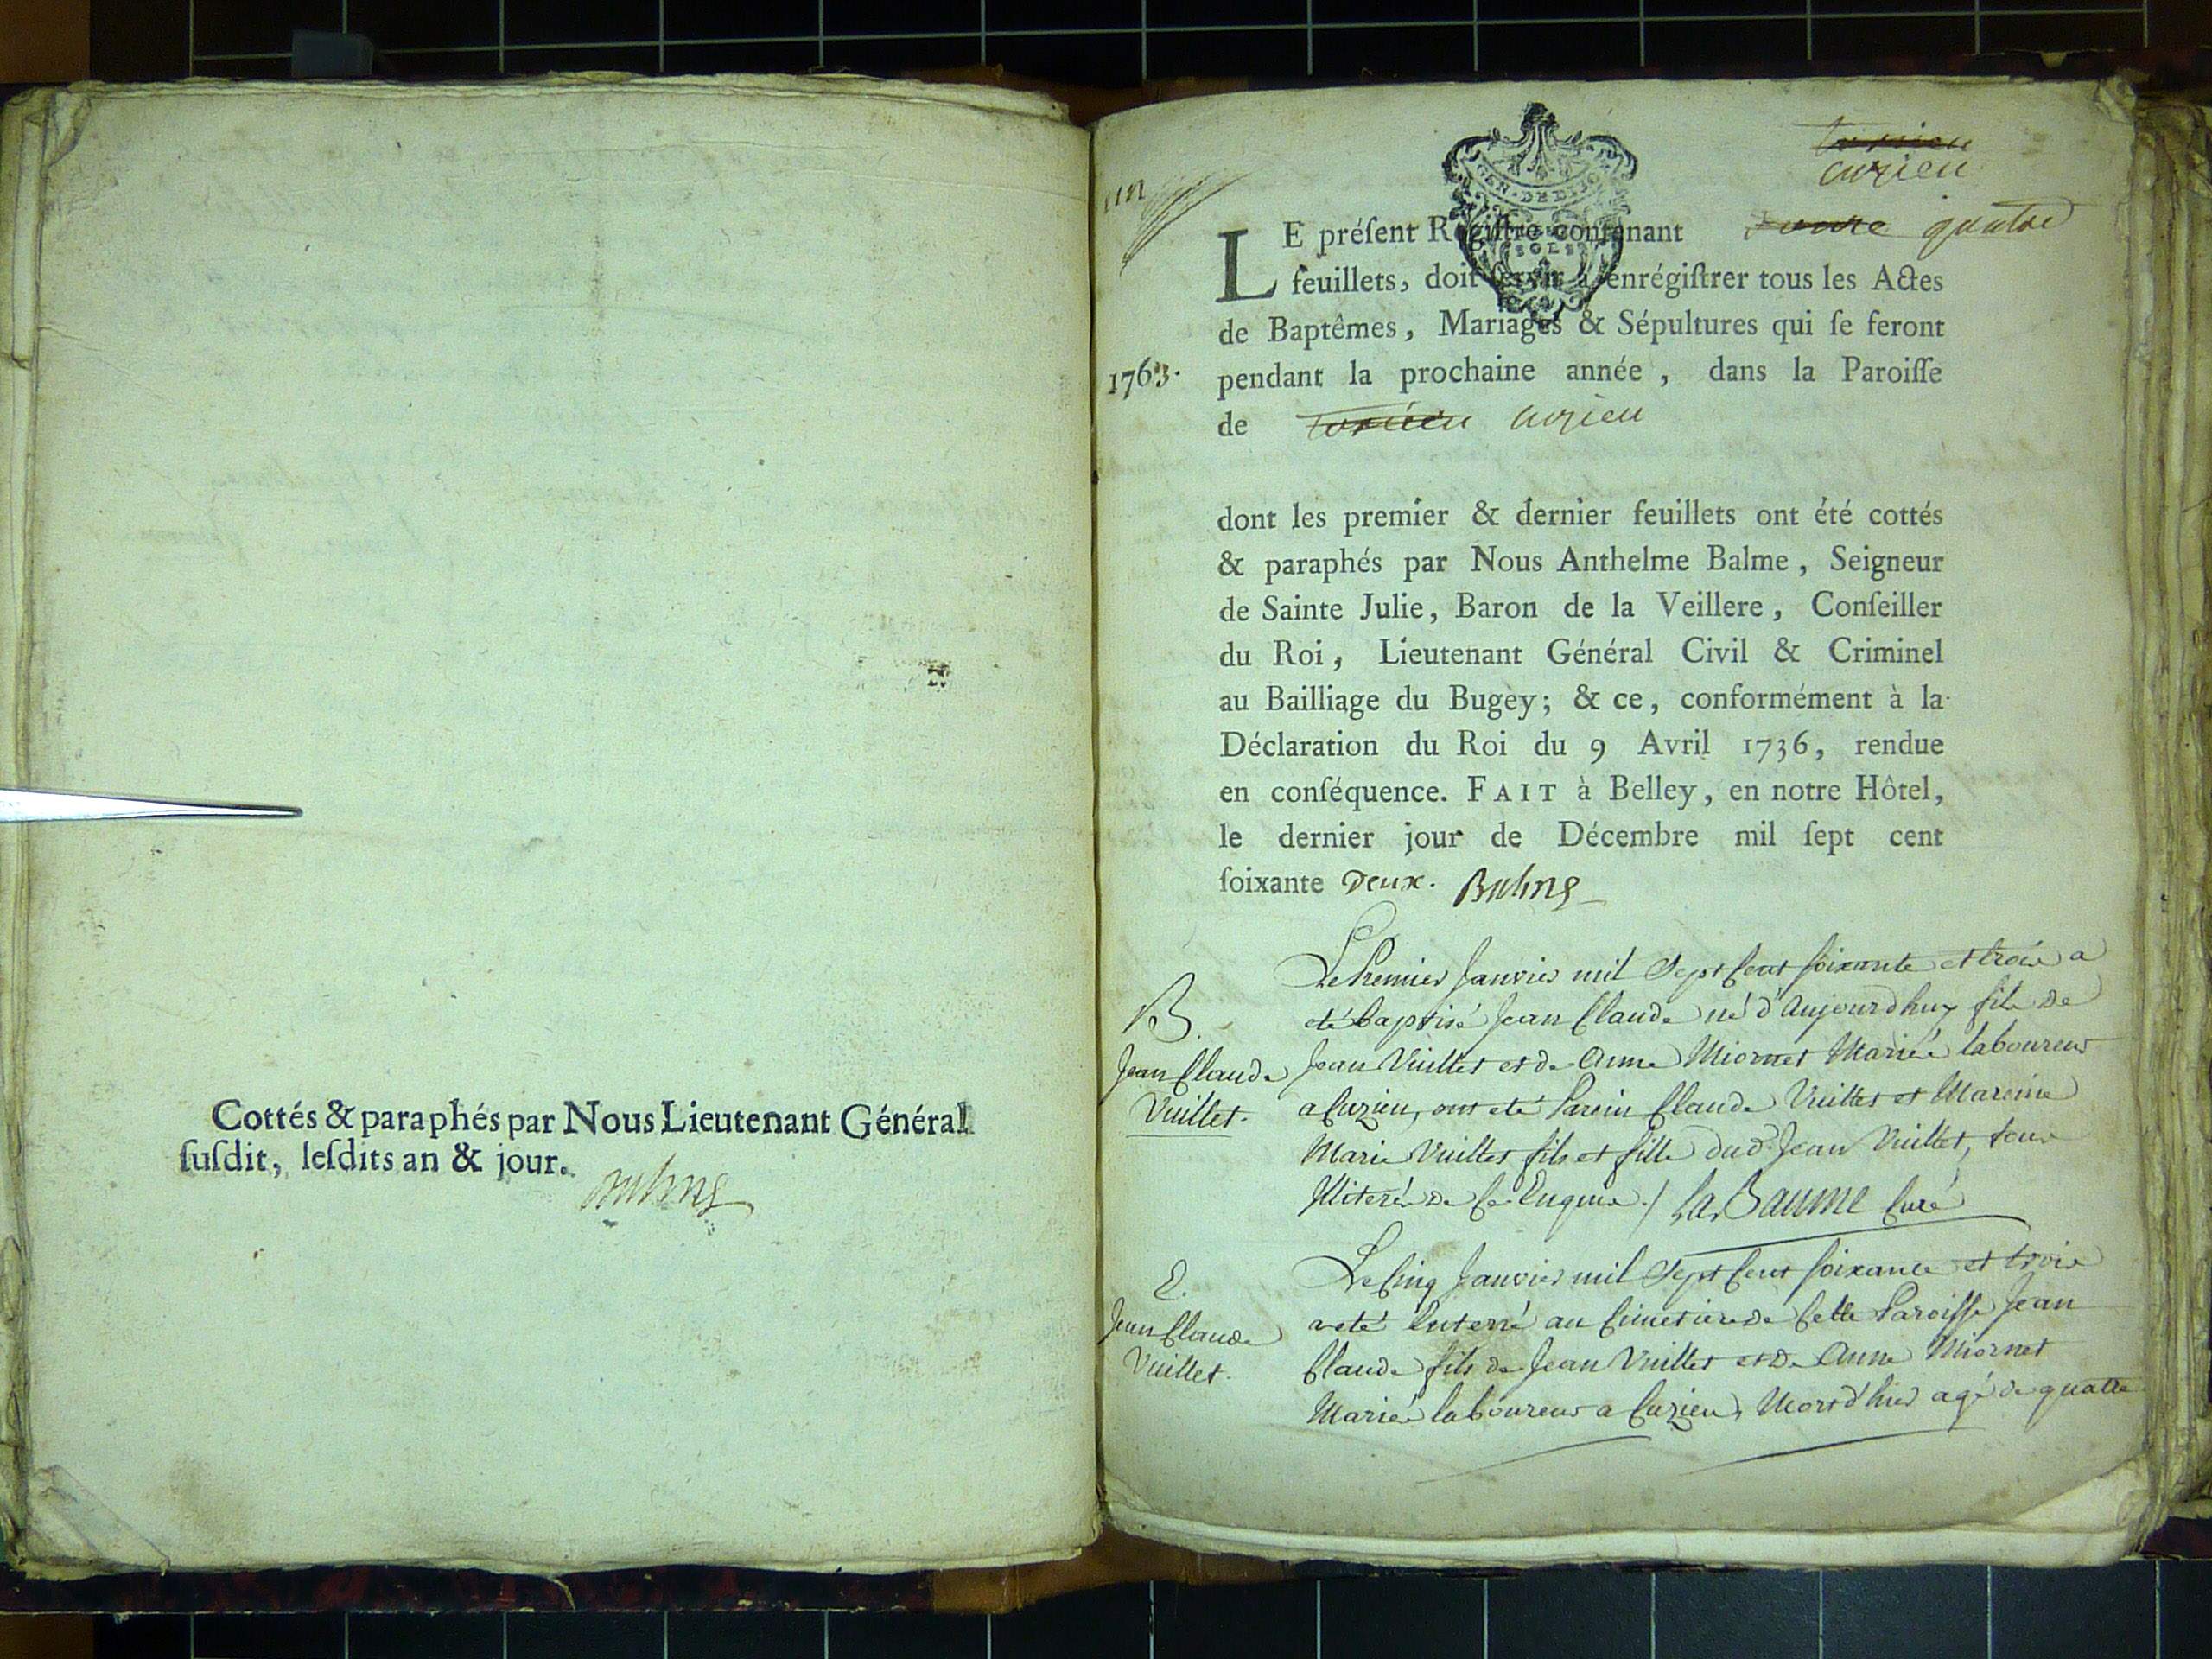 Cottés & paraphés par Nous Lieutenant Général
ſuſdit, leſdits an & jour.
un
curieu
LE préſent Regiſtre contenant quatre
feuillets, doit ſervir à enrégiſtrer tous les Actes
de Baptêmes, Mariages & Sépultures qui ſe feront
1763. pendant la prochaine année, dans la Paroiſſe
de curzieu
dont les premier & dernier feuillets ont été cottés
& paraphés par Nous Anthelme Balme, Seigneur
de Sainte Julie, Baron de la Veillere, Conſeiller
du Roi, Lieutenant Général Civil & Criminel
au Bailliage du Bugey; & ce, conformément à la
Déclaration du Roi du 9 Avril 1736, rendue
en conſéquence. FAIT à Belley, en notre Hôtel,
le dernier jour de Décembre mil ſept cent
ſoixante Deux. Balme
B.
Jean Claude
Vuillet.
Le Premier Janvier mil Sept Cent soixante et trois a
eté baptisé Jean Claude né d'Aujourdhuy fils de
Jean Vuillet et de Anne Miornet Mariés laboureur
a Cuzieu, ont eté Parein Claude Vuillet et Mareine
Marie Vuillet fils et fille dud. Jean Vuillet, tous
Illiterés de Ce Enquis./ La Baume Curé
E.
Jean Claude
Vuillet.
Le Cinq Janvier mil Sept Cent soixante et trois
a eté Enterré au Cimetiere de Cette Paroisse Jean
Claude fils de Jean Vuillet et De Anne Miornet
Mariés laboureur a Cuzieu, Mort d'hier agé de quatre